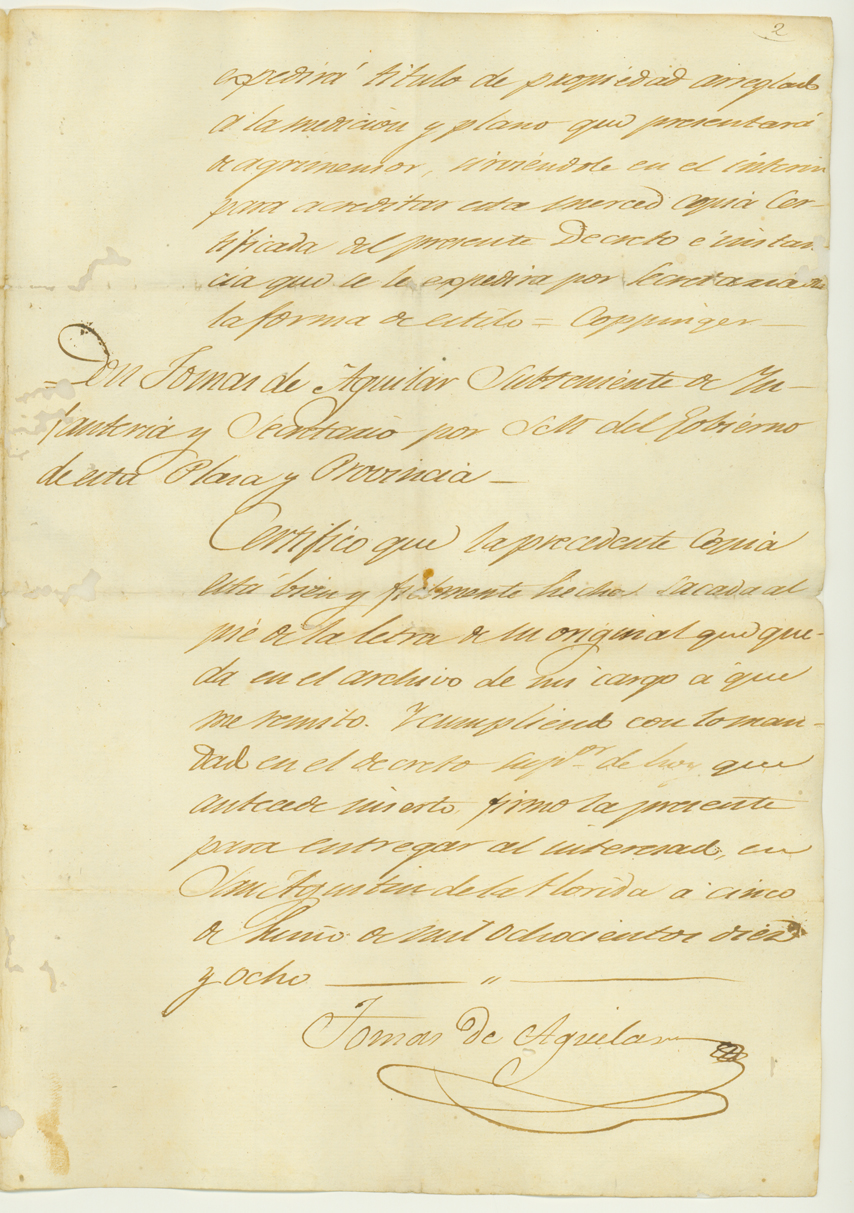 2
expedirá titulo de propiedad arreglado
a la medicion y plano que presentará
de agrimensor, sirviéndole en el interin
para acreditar esta merced copia Cer-
tificada del presente Decreto é instan-
cia que se le expedira por Secretaria en
la forma de estilo = Coppinger —
= Don Tomas de Aguilar Subteniente de Yn-
fanteria y Secretario por S.M. del Gobierno
de esta Plasa y Provincia —
Certifico que la precedente Copia
está bien y fielmente hecha sacada al
pié de la letra de su original que que-
da en el archivo de mi cargo a que
me remito. Y cumpliendo con lo man-
dado en el decreto sup.or de hoy que
antecede inserto firmo la presente
para entregar al interesado, en
San Agustin de la Florida a cinco
de Junio de mil ochocientos diez
y ocho ——— " ———
Tomas De Aguilar